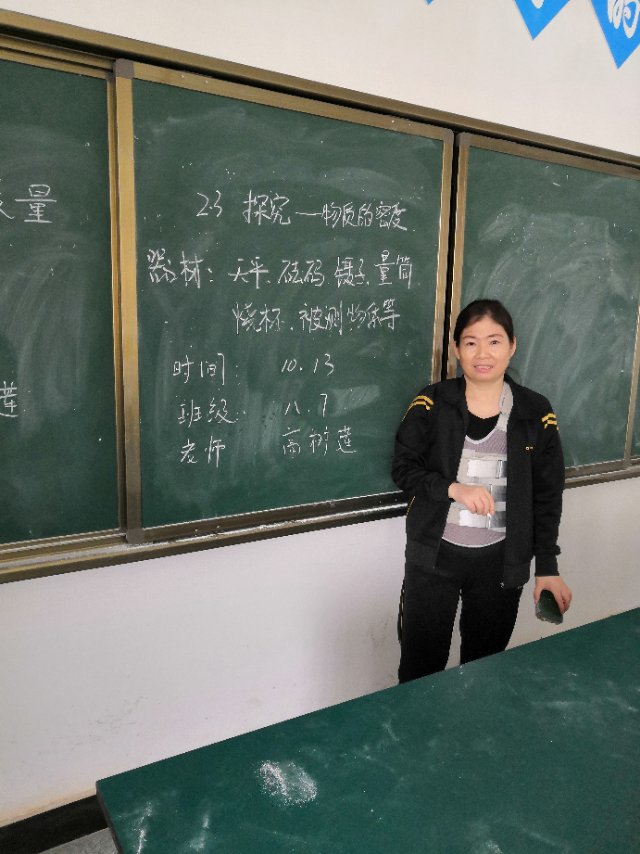 量
莲
2.3 探究——物质的密度
器材：天平、砝码、镊子、量筒、
烧杯、被测物体等
时间： 10.13
班级： 八.7
老师 高树莲
的